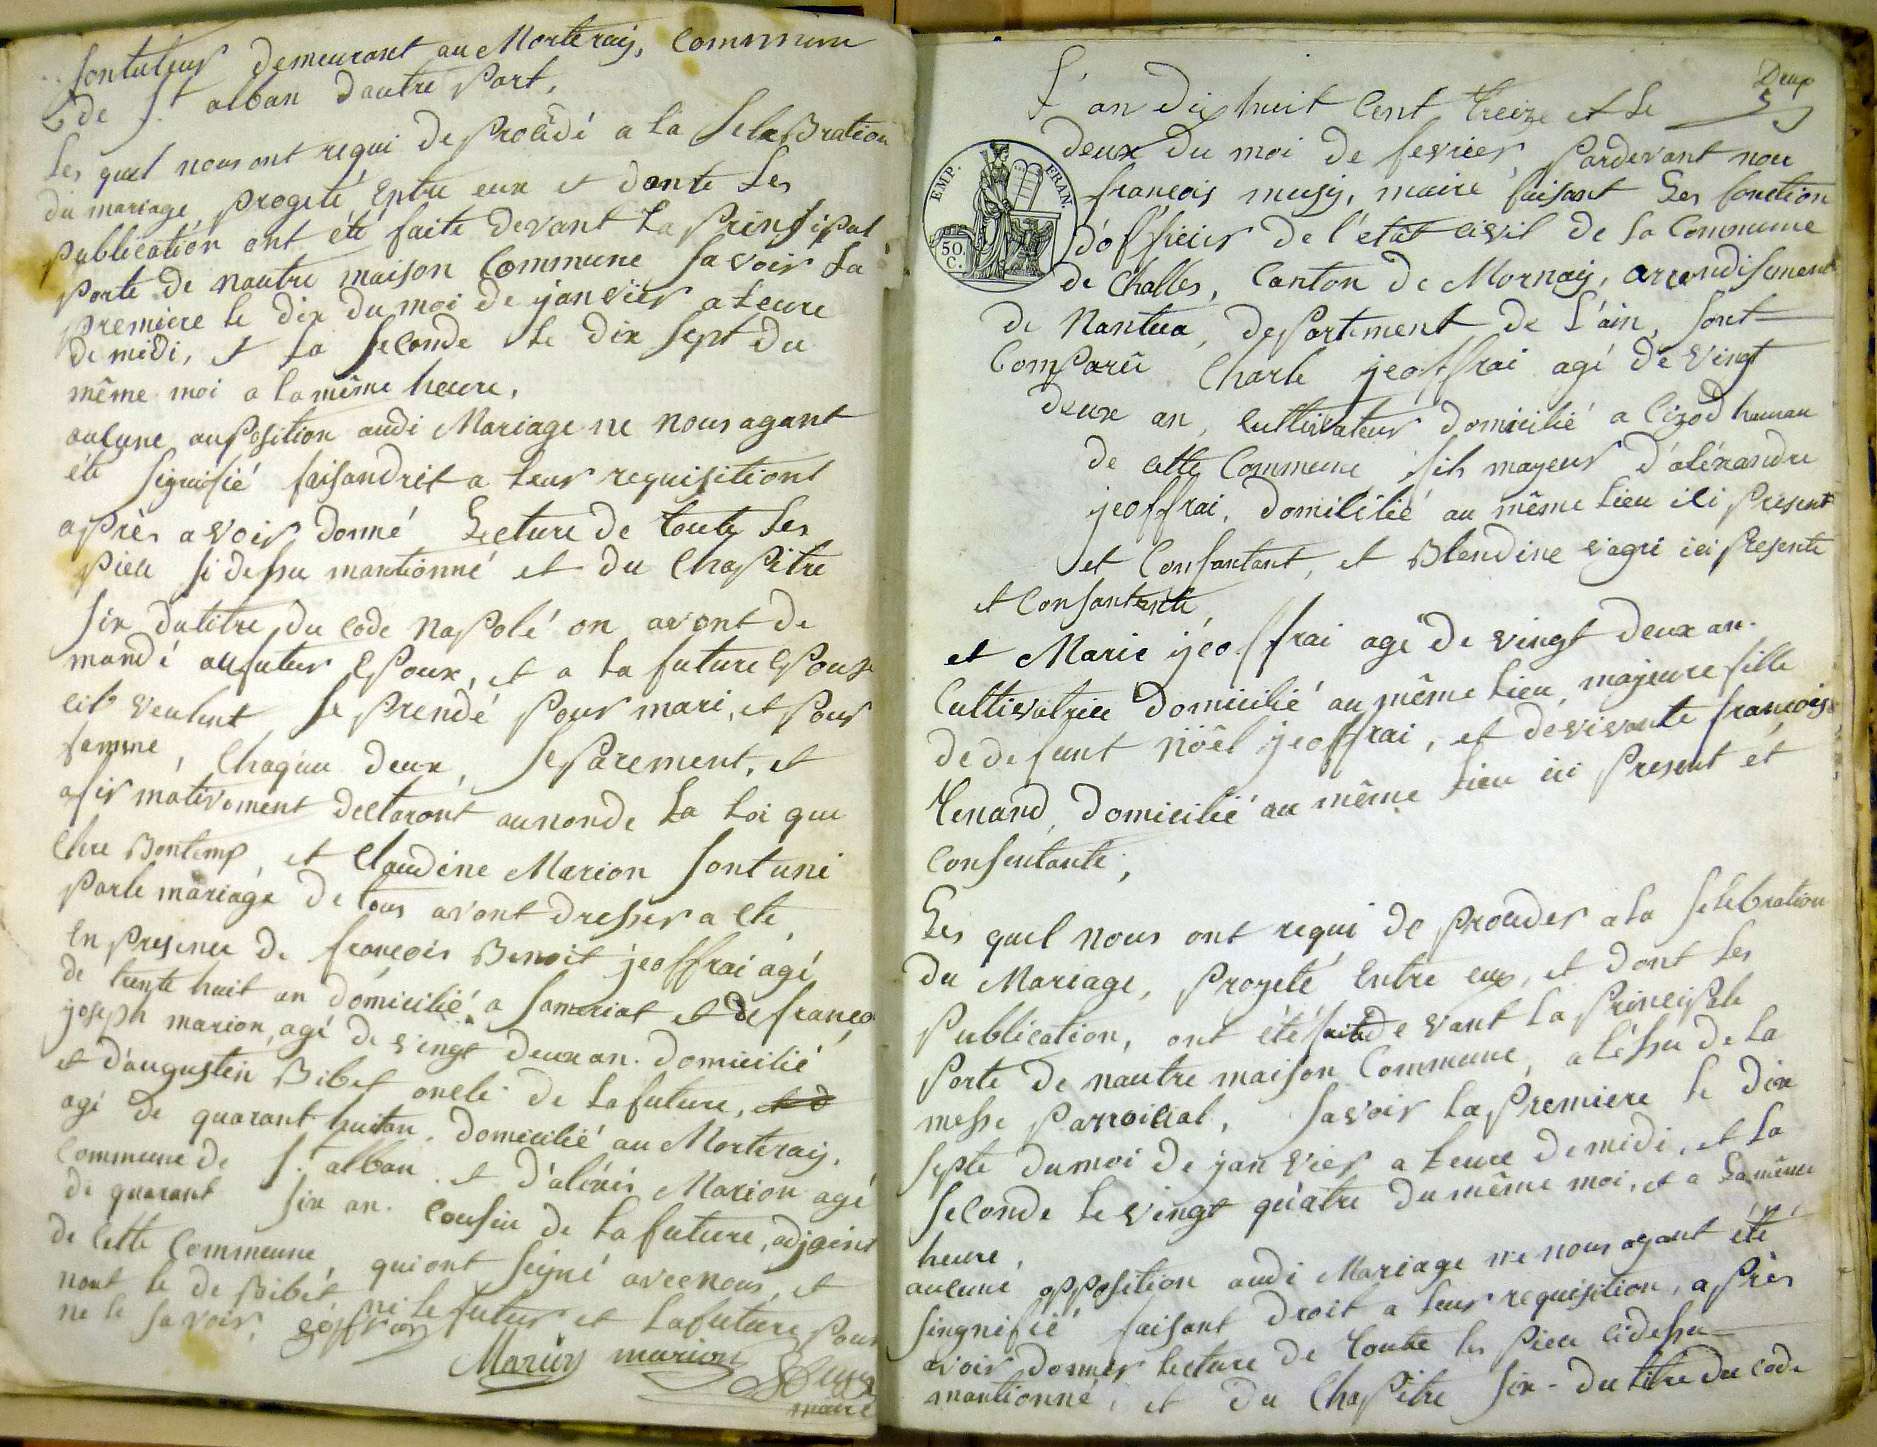 sontuteur demeurant au Morteray, Commune
de St alban dautre Part,
Les quel nous ont réqui de Procédé a la SelaBration
du mariage, Progeté Entre eux et donte Les
Publication ont été faite devant La Prinsipal
Porte de nautre maison Commune savoir La
Premiere le dix du moi de janvier a Leure
de midi, et La seconde le dix sept du
même moi a la même heure,
aucune auposition audi Mariage ne nous ayant
été signifié faisandrit a Leur requisitiont
après avoir donné Lecture de toute Les
Piece si dessu mantionné et du ChaPitre
six du titre du Code naPolé on avont de
mandé au futur EPoux, et a La future EPouse
cil veulent se Prendé Pour mari, et Pour
femme, Chaquun deux, séParement, et
afirmativement declaront aunonde La Loi que
Bontemp, et Claudine Marion sont uni
Parle mariage de tous avont dresser acte,
En Presence de françois Benoit jeoffrai agé
de trente huit an domicilié a Sameriat et de franço
joseph marion, agé de vingt deux an. domicilié
et d'augustin Bibet oncle de La future,
agé de quarant huitan, domicilié au Morteray,
Commune de St alban et d'aléxis Marion agé
de quarant six an. Cousin de La future, adjoint
de Cette Commune, qui ont seigné avecnous, et
nont le de Bibet ni le futur et La future Pour
ne le savoir,
Marion marion
maire
Deux
L'an dix huit Cent treize et Le
deux du moi de fevrier, Pardevant nou
françois musy, maire faisant Les fonction
d'officier de l'état civil de La Commune
de Challes, Canton de Mornay, arrondisement
de Nantua, dePartement de L'ain, sont
ComParû Charle jeoffrai agé de vingt
deux an, Cultivateur domicilié a Cizod hauau
de cette Commune, fils mayeur d'aléxandre
jeoffrai, domicilié au même Lieu ici Présent
et Consantant, et Blendine ici Presente
et Consantante
et Marie jéoffrai age de vingt deux an.
Cultivatrice domicilié au même Lieu, majeure fille
de defunt Nöêl jeoffrai, et de vivante françoise
Tenand, domicilié au même Lieu ici Present et
Consentante,
Les quel nous ont requi de Proceder a La selebration
du Mariage, Projeté Entre eux, et dont Les
Publication, ont été faite devant La PrinciPale
Porte de nautre maison Commune, a léssu de La
messe Parroicial, savoir La Premiere le dix
septe du moi de janvier a Leure de midi, et La
seconde Le vingt quatre du même moi, et a La même
heure,
aucune opposition audi Mariage ne nous ayant été
singnifié faisant droit a Leur requisition, aPrès
avoir donner Lecture de toute les Piece cidessu
mantionné, et du ChaPitre six du titre du Code
EMP. FRAN.
50 C.